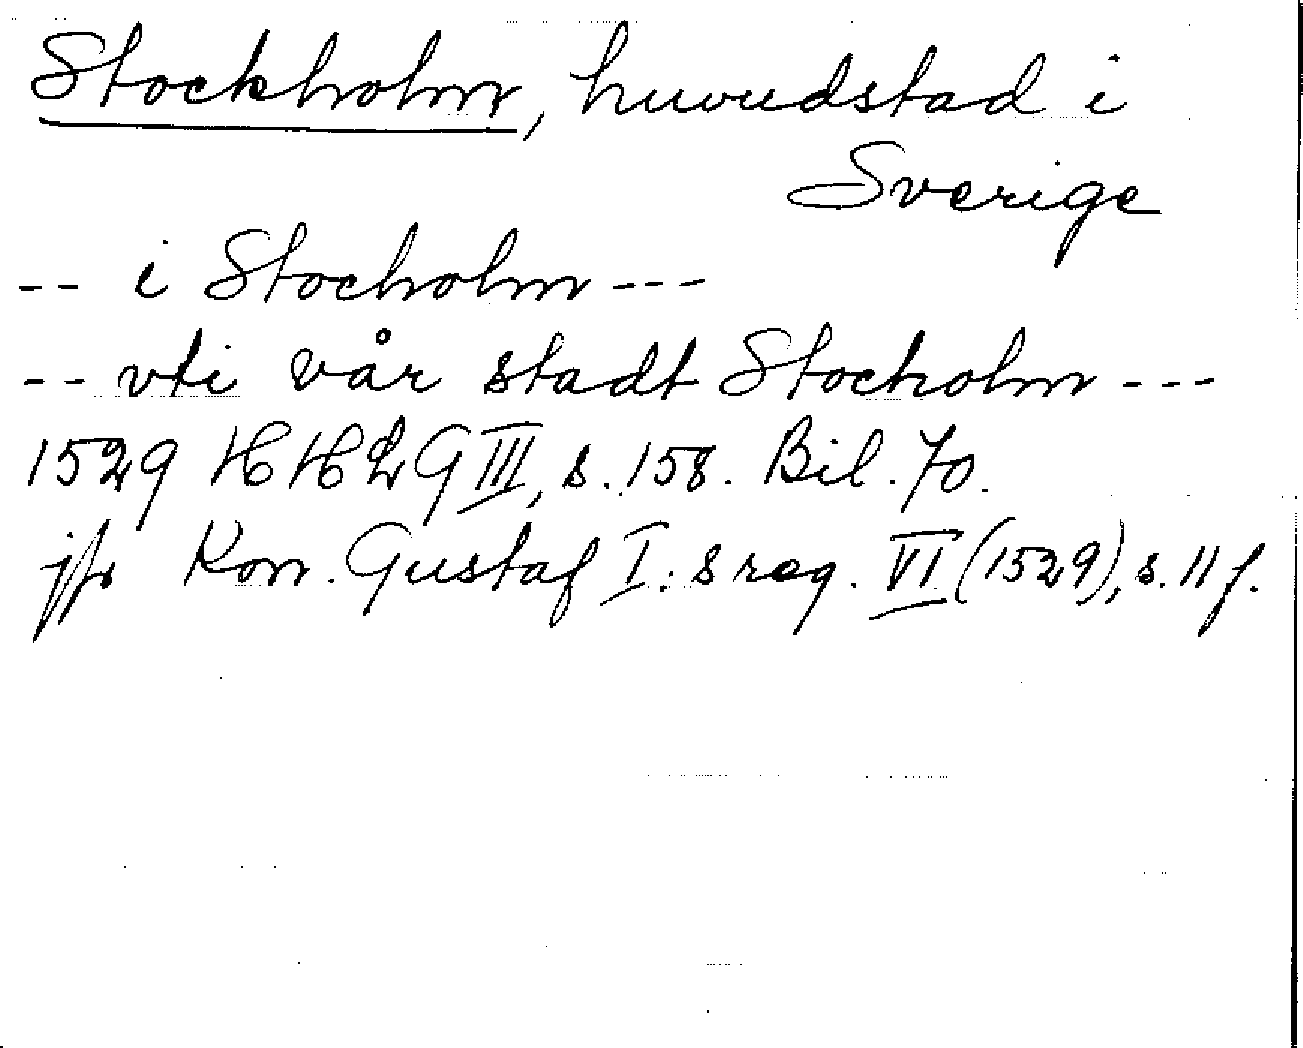 Stockholm, huvudstad i
Sverige
-- i Stocholm ---
-- vti vår stadt Stocholm ---
1529 HHLG III, s. 158. Bil. 70.
jfr Kon. Gustaf I:s reg. VI (1529), s. 11 f.